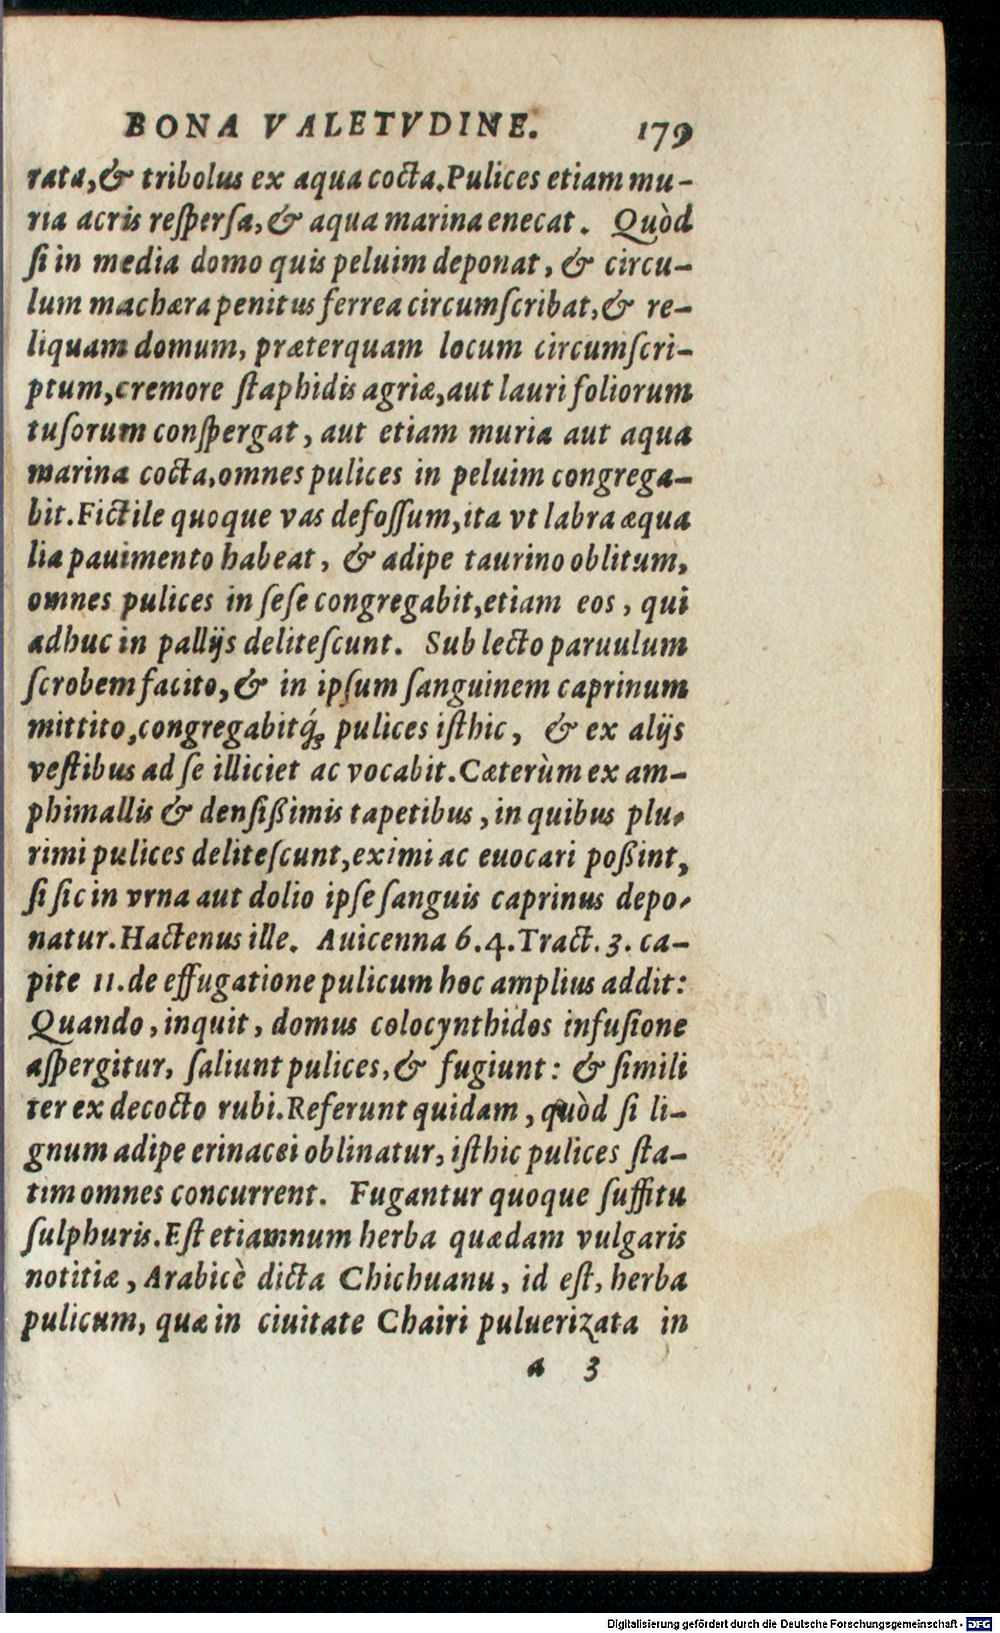 BONA VALETVDINE. 179
rata, & tribolus ex aqua cocta. Pulices etiam mu-
ria acris reſperſa, & aqua marina enecat. Quòd
ſi in media domo quis peluim deponat, & circu-
lum machæra penitus ferrea circumſcribat, & re-
liquam domum, præterquam locum circumſcri-
ptum, cremore ſtaphidis agriæ, aut lauri foliorum
tuſorum conſpergat, aut etiam muria aut aqua
marina cocta, omnes pulices in peluim congrega-
bit. Fictile quoque vas defoſſum, ita vt labra æqua
lia pauimento habeat, & adipe taurino oblitum,
omnes pulices in ſeſe congregabit, etiam eos, qui
adhuc in pallijs deliteſcunt. Sub lecto paruulum
ſcrobem facito, & in ipſum ſanguinem caprinum
mittito, congregabitq́; pulices iſthic, & ex alijs
veſtibus ad ſe illiciet ac vocabit. Cæterùm ex am-
phimallis & denſißimis tapetibus, in quibus plu-
rimi pulices deliteſcunt, eximi ac euocari poßint,
ſi ſic in vrna aut dolio ipſe ſanguis caprinus depo-
natur. Hactenus ille. Auicenna 6.4. Tract. 3. ca-
pite 11. de effugatione pulicum hoc amplius addit:
Quando, inquit, domus colocynthidos infuſione
aſpergitur, ſaliunt pulices, & fugiunt: & ſimili
ter ex decocto rubi. Referunt quidam, quòd ſi li-
gnum adipe erinacei oblinatur, iſthic pulices ſta-
tim omnes concurrent. Fugantur quoque ſuffitu
ſulphuris. Eſt etiamnum herba quædam vulgaris
notitiæ, Arabicè dicta Chichuanu, id eſt, herba
pulicum, quæ in ciuitate Chairi puluerizata in
a 3
Digitalisierung gefördert durch die Deutsche Forschungsgemeinschaft - DFG